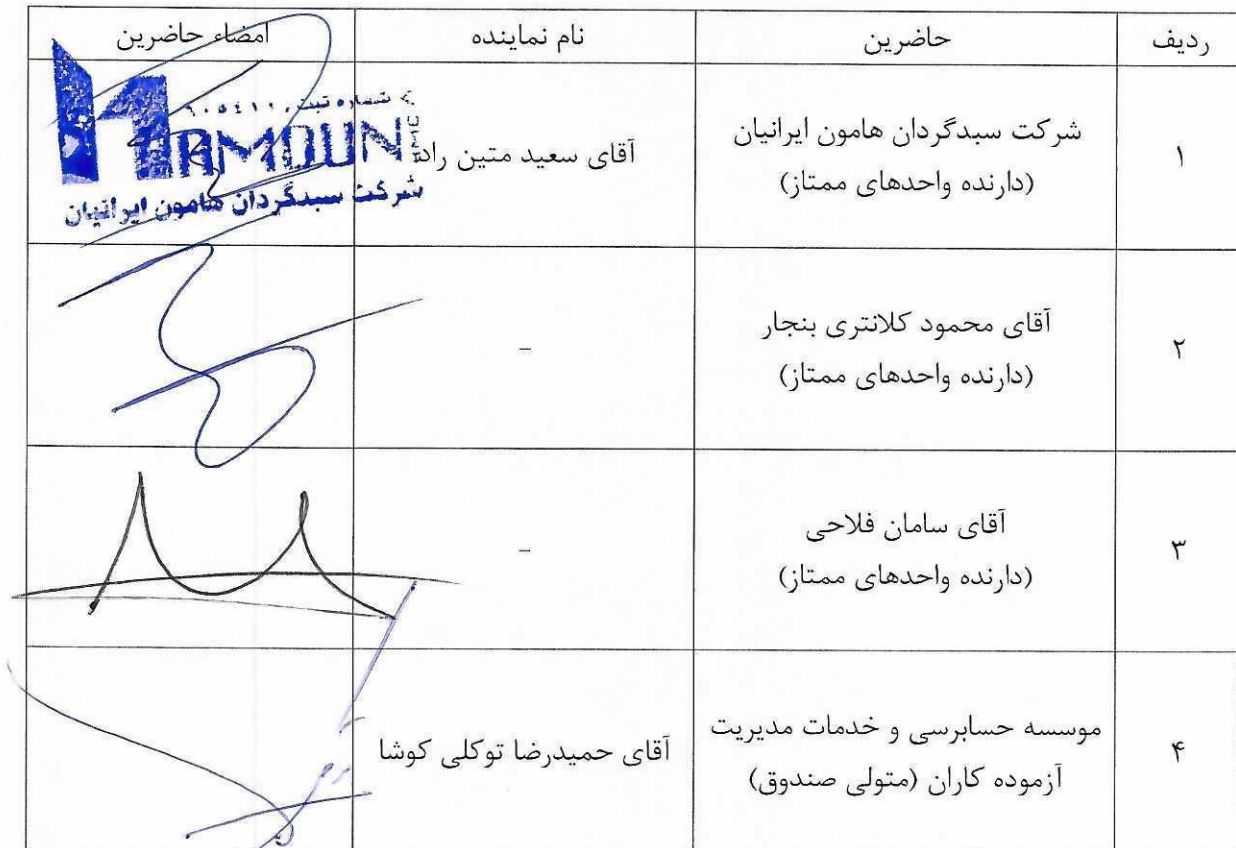 ردیف
حاضرین
نام نماینده
امضاء حاضرین
۱
شرکت سبدگردان هامون ایرانیان
(دارنده واحدهای ممتاز)
آقای سعید متین راد
شماره ثبت
HAMOUN
شرکت سبدگردان هامون ایرانیان
۲
آقای محمود کلانتری بنجار
(دارنده واحدهای ممتاز)
-
۳
آقای سامان فلاحی
(دارنده واحدهای ممتاز)
-
۴
موسسه حسابرسی و خدمات مدیریت
آزموده کاران (متولی صندوق)
آقای حمیدرضا توکلی کوشا